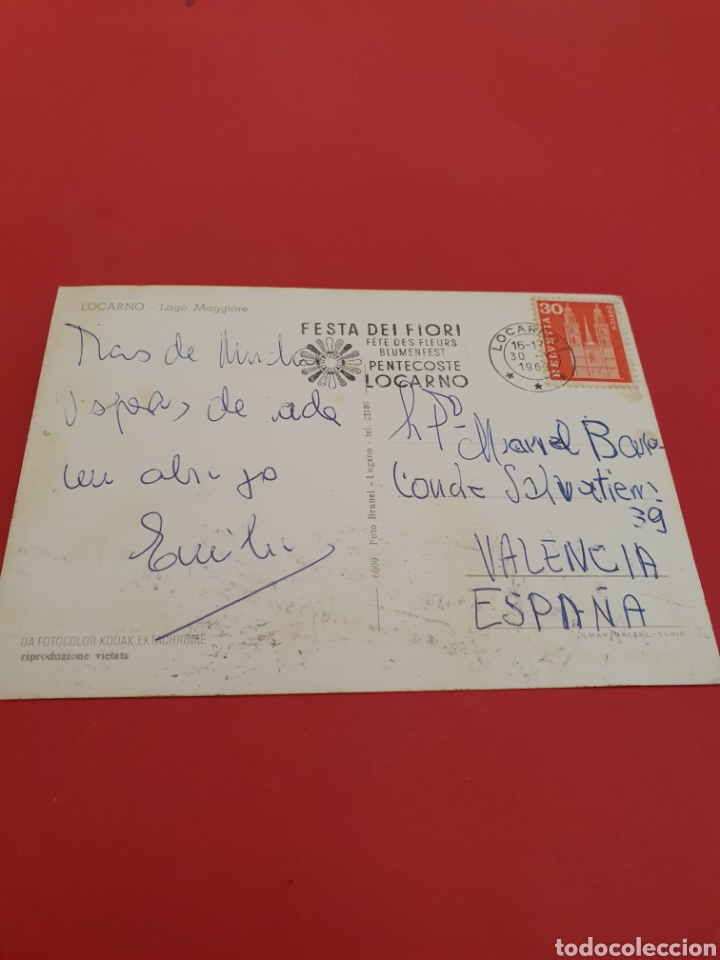 LOCARNO - Lago Maggiore
FESTA DEI FIORI
FÊTE DES FLEURS
BLUMENFEST
PENTECOSTE
LOCARNO
LOCARNO
16-17
30
196
30
HELVETIA
ZÜRICH
Tras de
de
un abrazo
Emilio
6009 Foto Brunel - Lugano - tel. 23189
Manuel
Conde Salvatierra
39
VALENCIA
ESPAÑA
DA FOTOCOLOR KODAK EKTACHROME
riproduzione vietata
todocoleccion